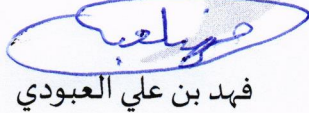 فهد بن علي العبودي